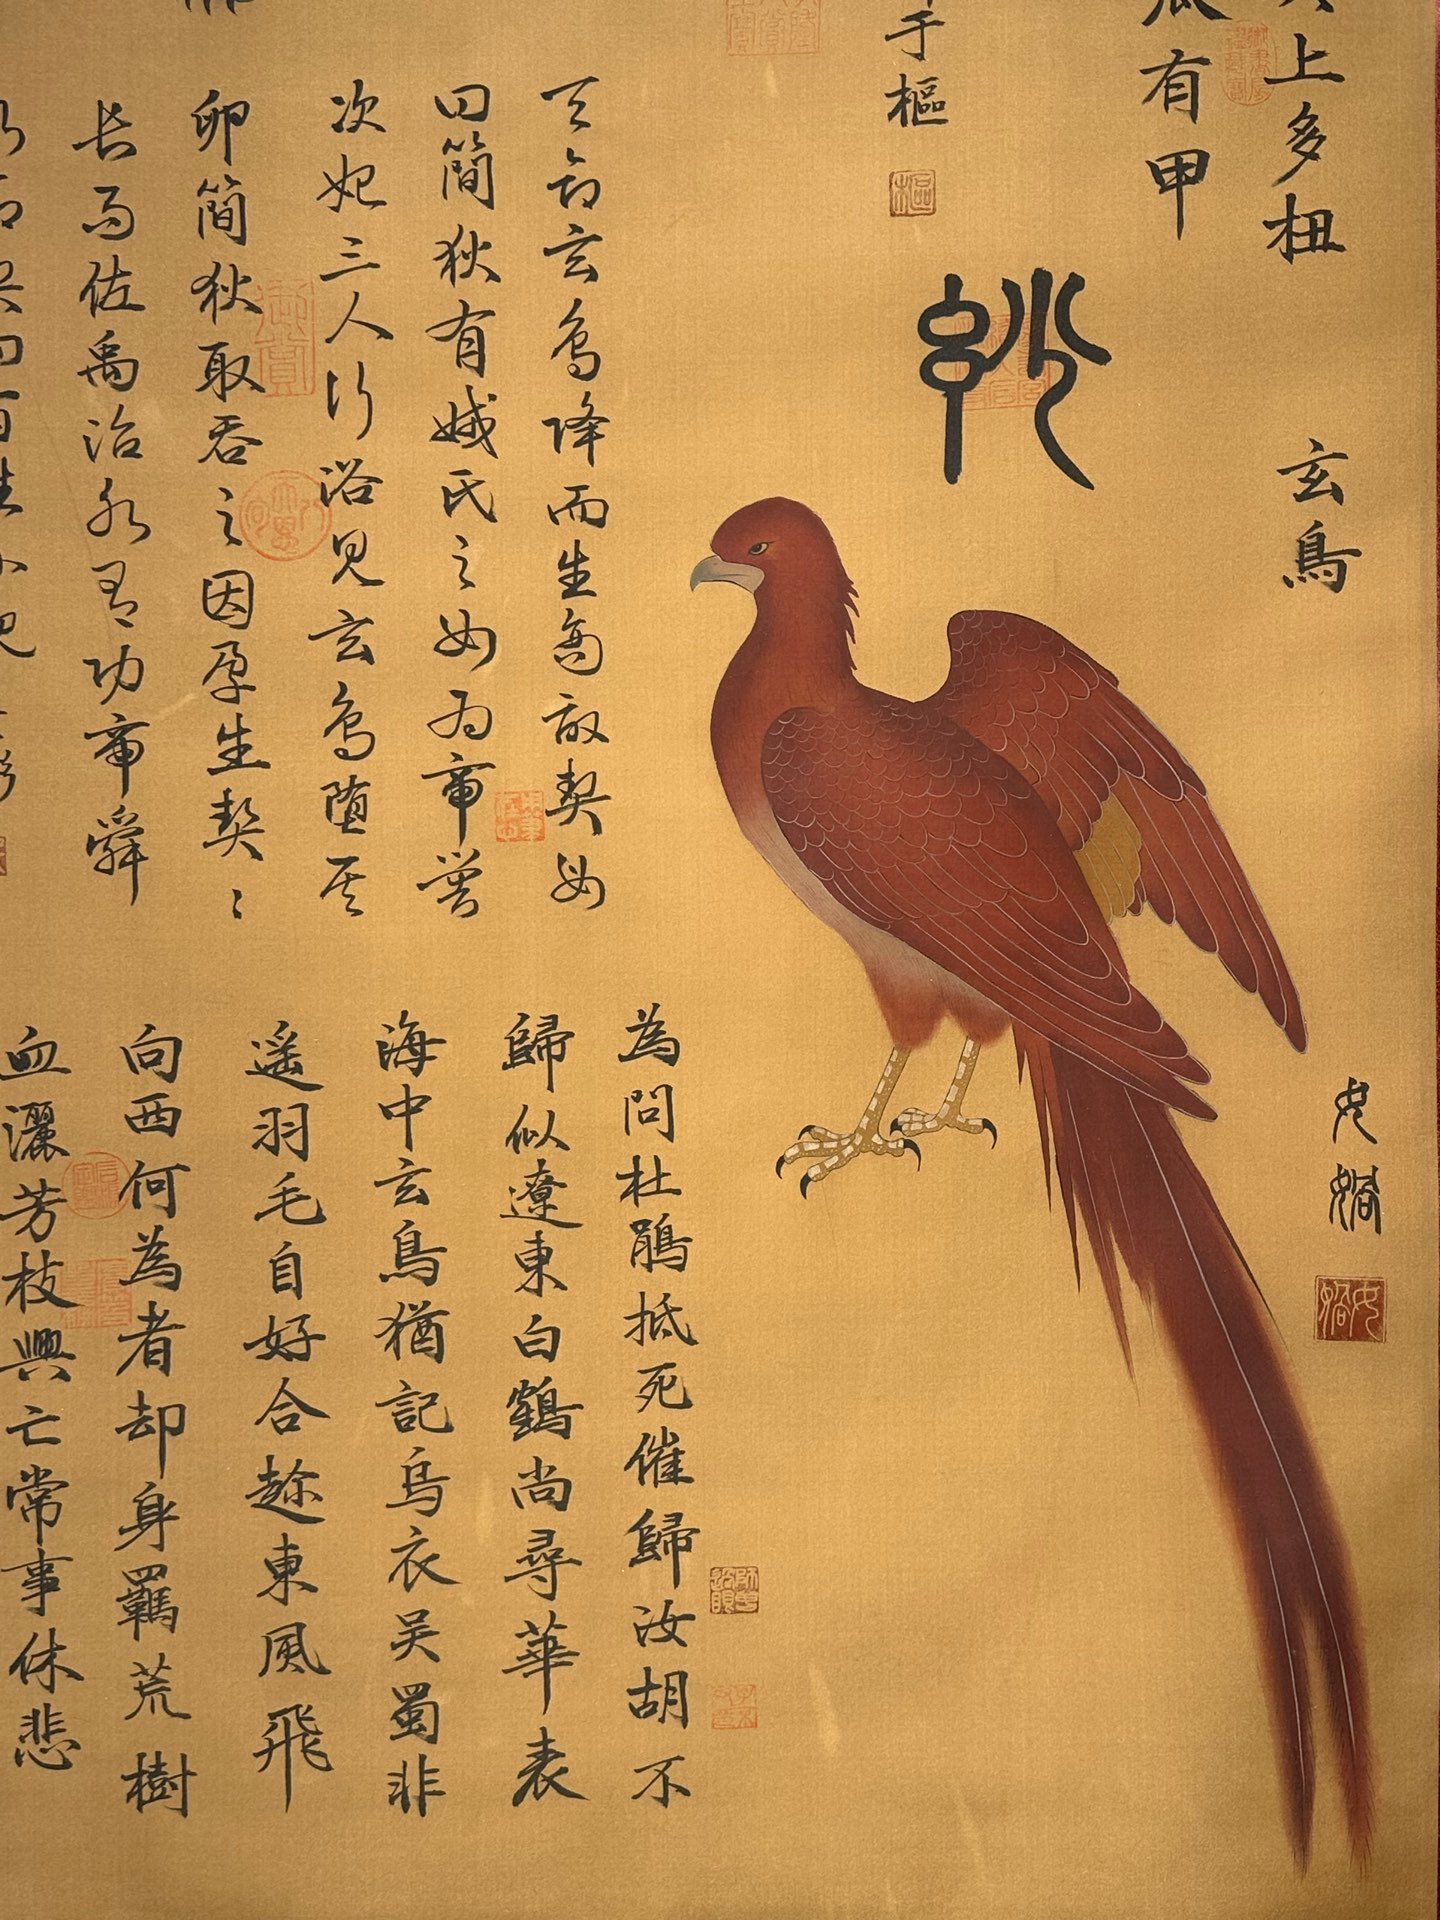 上多杻
有甲
于樞
樞
玄鳥
女嬌
天命玄鳥降而生商故契母
曰簡狄有娀氏之女為帝嚳
次妃三人行浴見玄鳥墮其
卵簡狄取吞之因孕生契契
長而佐禹治水有功帝舜
為問杜鵑抵死催歸汝胡不
歸似遼東白鶴尚尋華表
海中玄鳥猶記烏衣吴蜀非
遥羽毛自好合趁東風飛
向西何為者却身羈荒樹
血灑芳枝興亡常事休悲